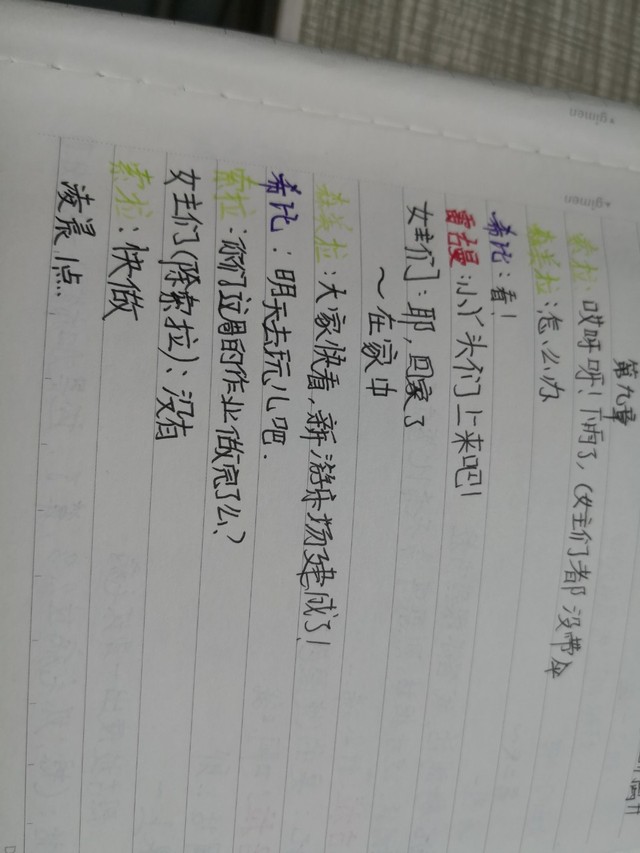 第九章
索拉：哎呀呀！下雨了，（女主们都没带伞
森美拉：怎么办
希比：看！
雷古曼：小丫头们上来吧！
女主们：耶，回家了
～在家中
森美拉：大家快看，新游乐场建成了！
希比：明天去玩儿吧．
索拉：你们这周的作业做完了么？
女主们（除索拉）：没有
索拉：快做
凌晨1点..
gimen
gimen